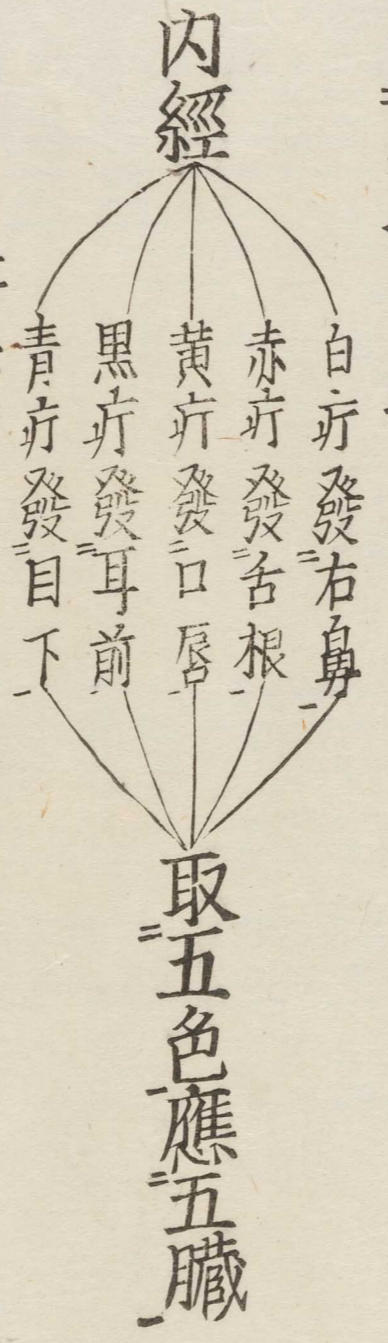 内經
白疔發右鼻
赤疔發舌根
黄疔發口唇
黒疔發耳前
青疔發目下
取五色應五臓